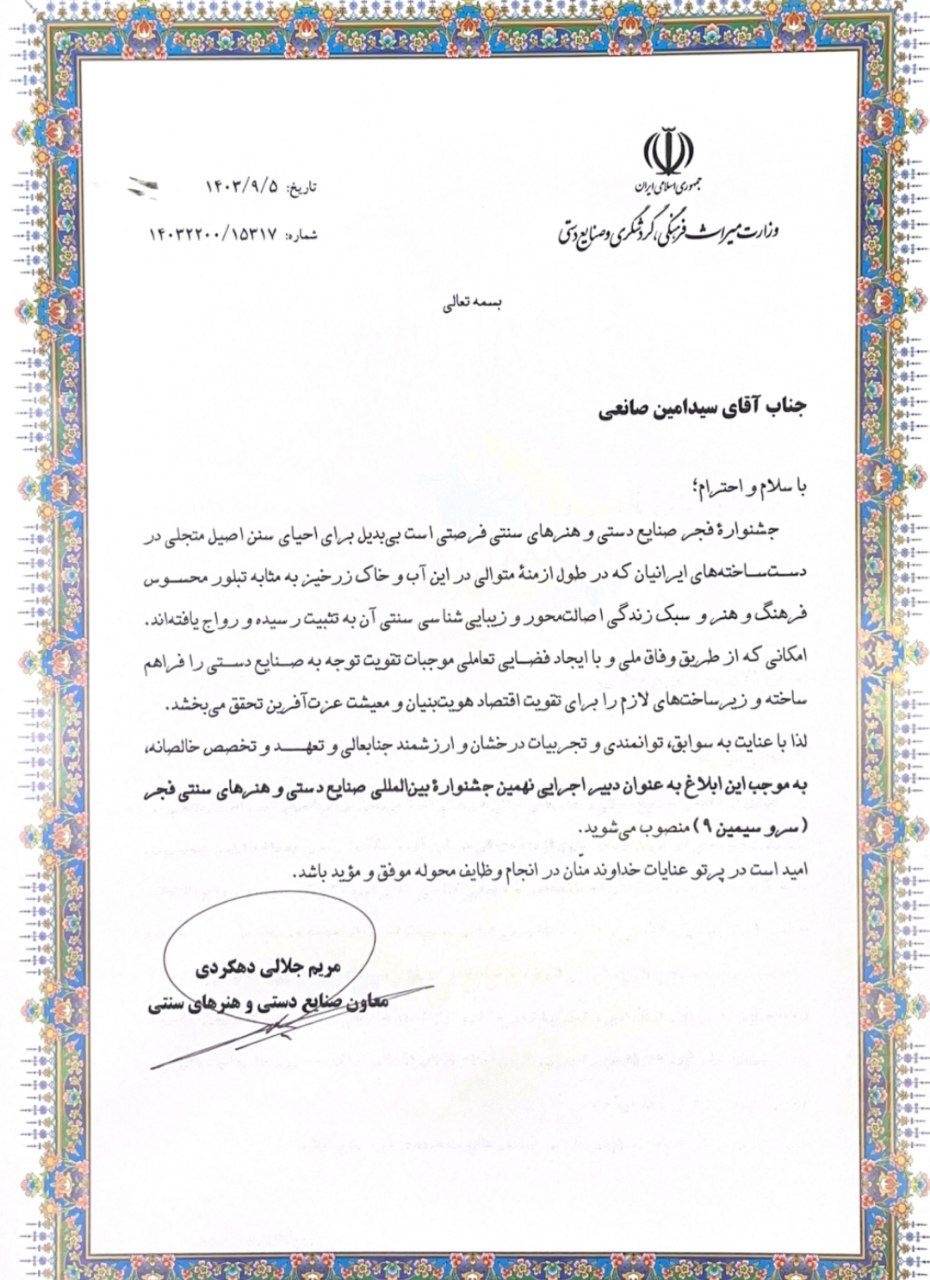 جمهوری اسلامی ایران
وزارت میراث فرهنگی، گردشگری و صنایع دستی
تاریخ: ۱۴۰۳/۹/۵
شماره: ۱۴۰۳۲۲۰۰/۱۵۳۱۷
بسمه تعالی
جناب آقای سیدامین صانعی
با سلام و احترام؛
جشنوارهٔ فجر صنایع دستی و هنرهای سنتی فرصتی است بی‌بدیل برای احیای سنن اصیل متجلی در
دست‌ساخته‌های ایرانیان که در طول ازمنهٔ متوالی در این آب و خاک زرخیز به مثابه تبلور محسوس
فرهنگ و هنر و سبک زندگی اصالت‌محور و زیبایی‌شناسی سنتی آن به تثبیت رسیده و رواج یافته‌اند.
امکانی که از طریق وفاق ملی و با ایجاد فضایی تعاملی موجبات تقویت توجه به صنایع دستی را فراهم
ساخته و زیرساخت‌های لازم را برای تقویت اقتصاد هویت‌بنیان و معیشت عزت‌آفرین تحقق می‌بخشد.
لذا با عنایت به سوابق، توانمندی و تجربیات درخشان و ارزشمند جنابعالی و تعهد و تخصص خالصانه،
به موجب این ابلاغ به عنوان دبیر اجرایی نهمین جشنوارهٔ بین‌المللی صنایع دستی و هنرهای سنتی فجر
(سرو سیمین ۹) منصوب می‌شوید.
امید است در پرتو عنایات خداوند منّان در انجام وظایف محوله موفق و مؤید باشد.
مریم جلالی دهکردی
معاون صنایع دستی و هنرهای سنتی